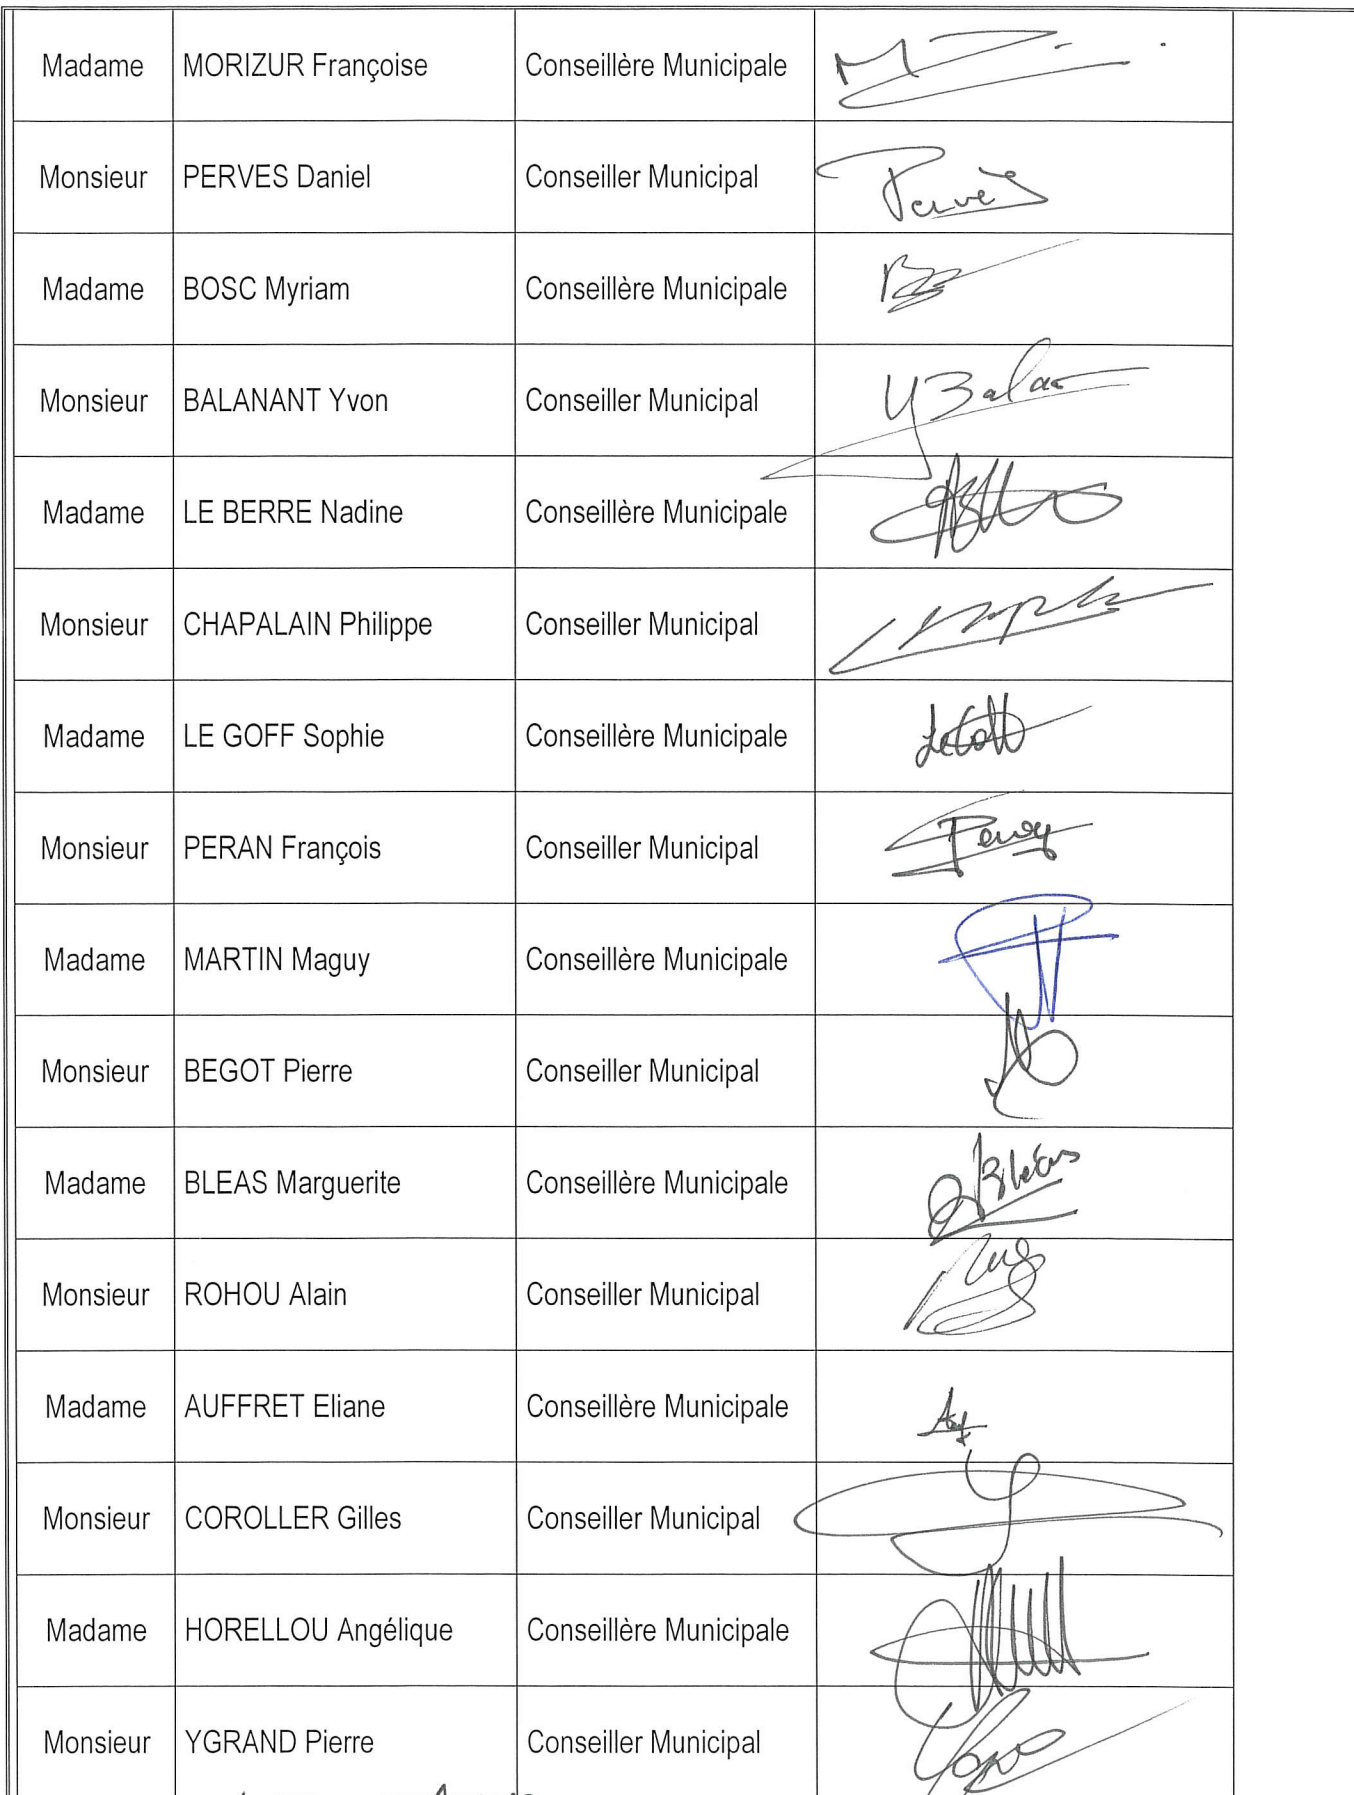 Madame MORIZUR Françoise Conseillère Municipale
Monsieur PERVES Daniel Conseiller Municipal Pervès
Madame BOSC Myriam Conseillère Municipale
Monsieur BALANANT Yvon Conseiller Municipal YBalan
Madame LE BERRE Nadine Conseillère Municipale
Monsieur CHAPALAIN Philippe Conseiller Municipal
Madame LE GOFF Sophie Conseillère Municipale LeGoff
Monsieur PERAN François Conseiller Municipal
Madame MARTIN Maguy Conseillère Municipale
Monsieur BEGOT Pierre Conseiller Municipal
Madame BLEAS Marguerite Conseillère Municipale Bléas
Monsieur ROHOU Alain Conseiller Municipal
Madame AUFFRET Eliane Conseillère Municipale
Monsieur COROLLER Gilles Conseiller Municipal
Madame HORELLOU Angélique Conseillère Municipale
Monsieur YGRAND Pierre Conseiller Municipal